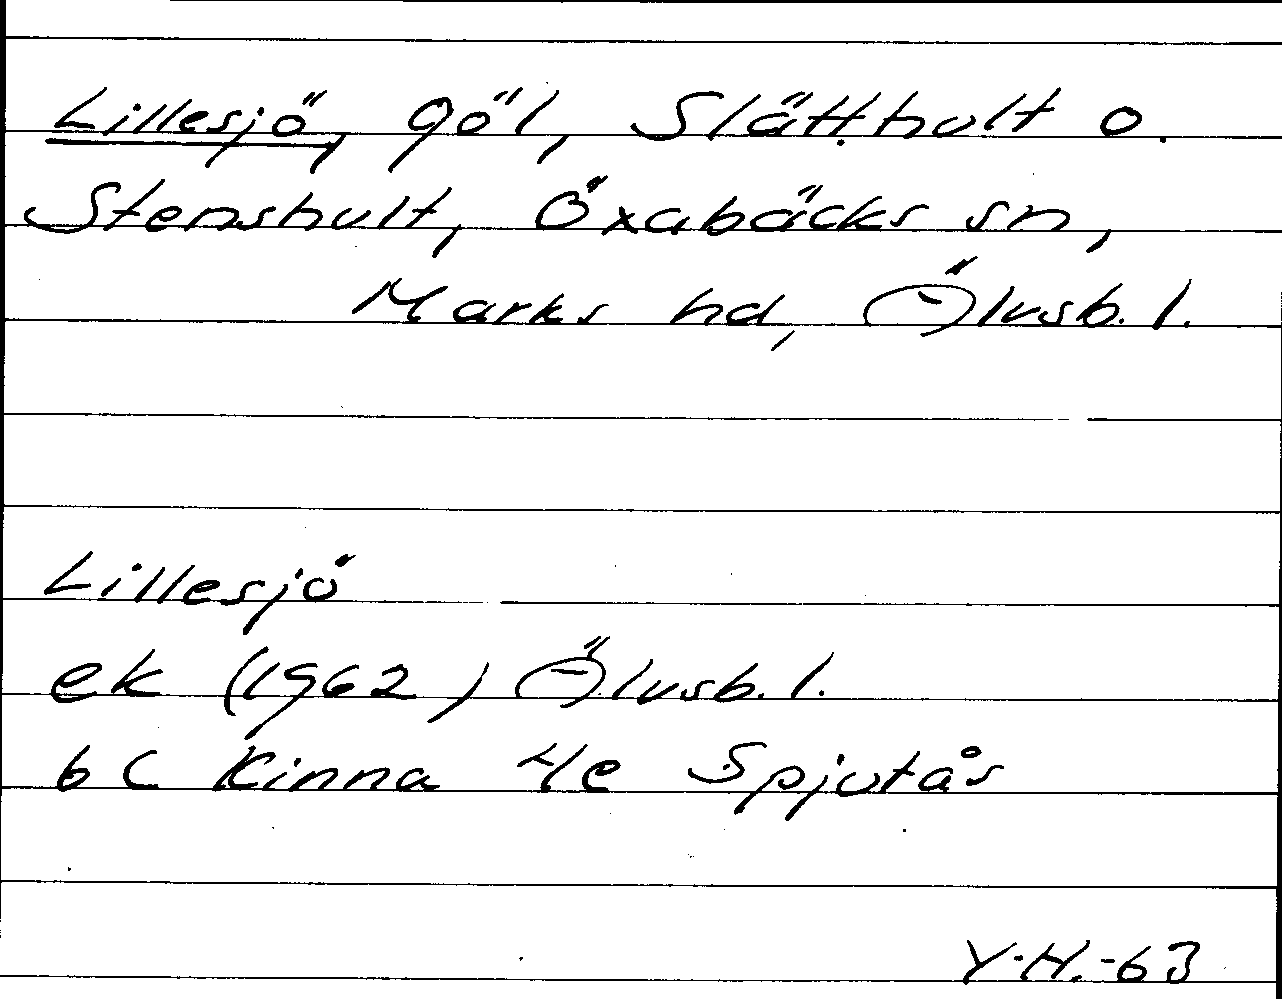 Lillesjö, göl, Slätthult o.
Stenshult, Öxabäcks sn,
Marks hd, Älvsb. l.
Lillesjö
ek (1962) Älvsb. l.
6 C Kinna 4e Spjutås
Y.H.-63